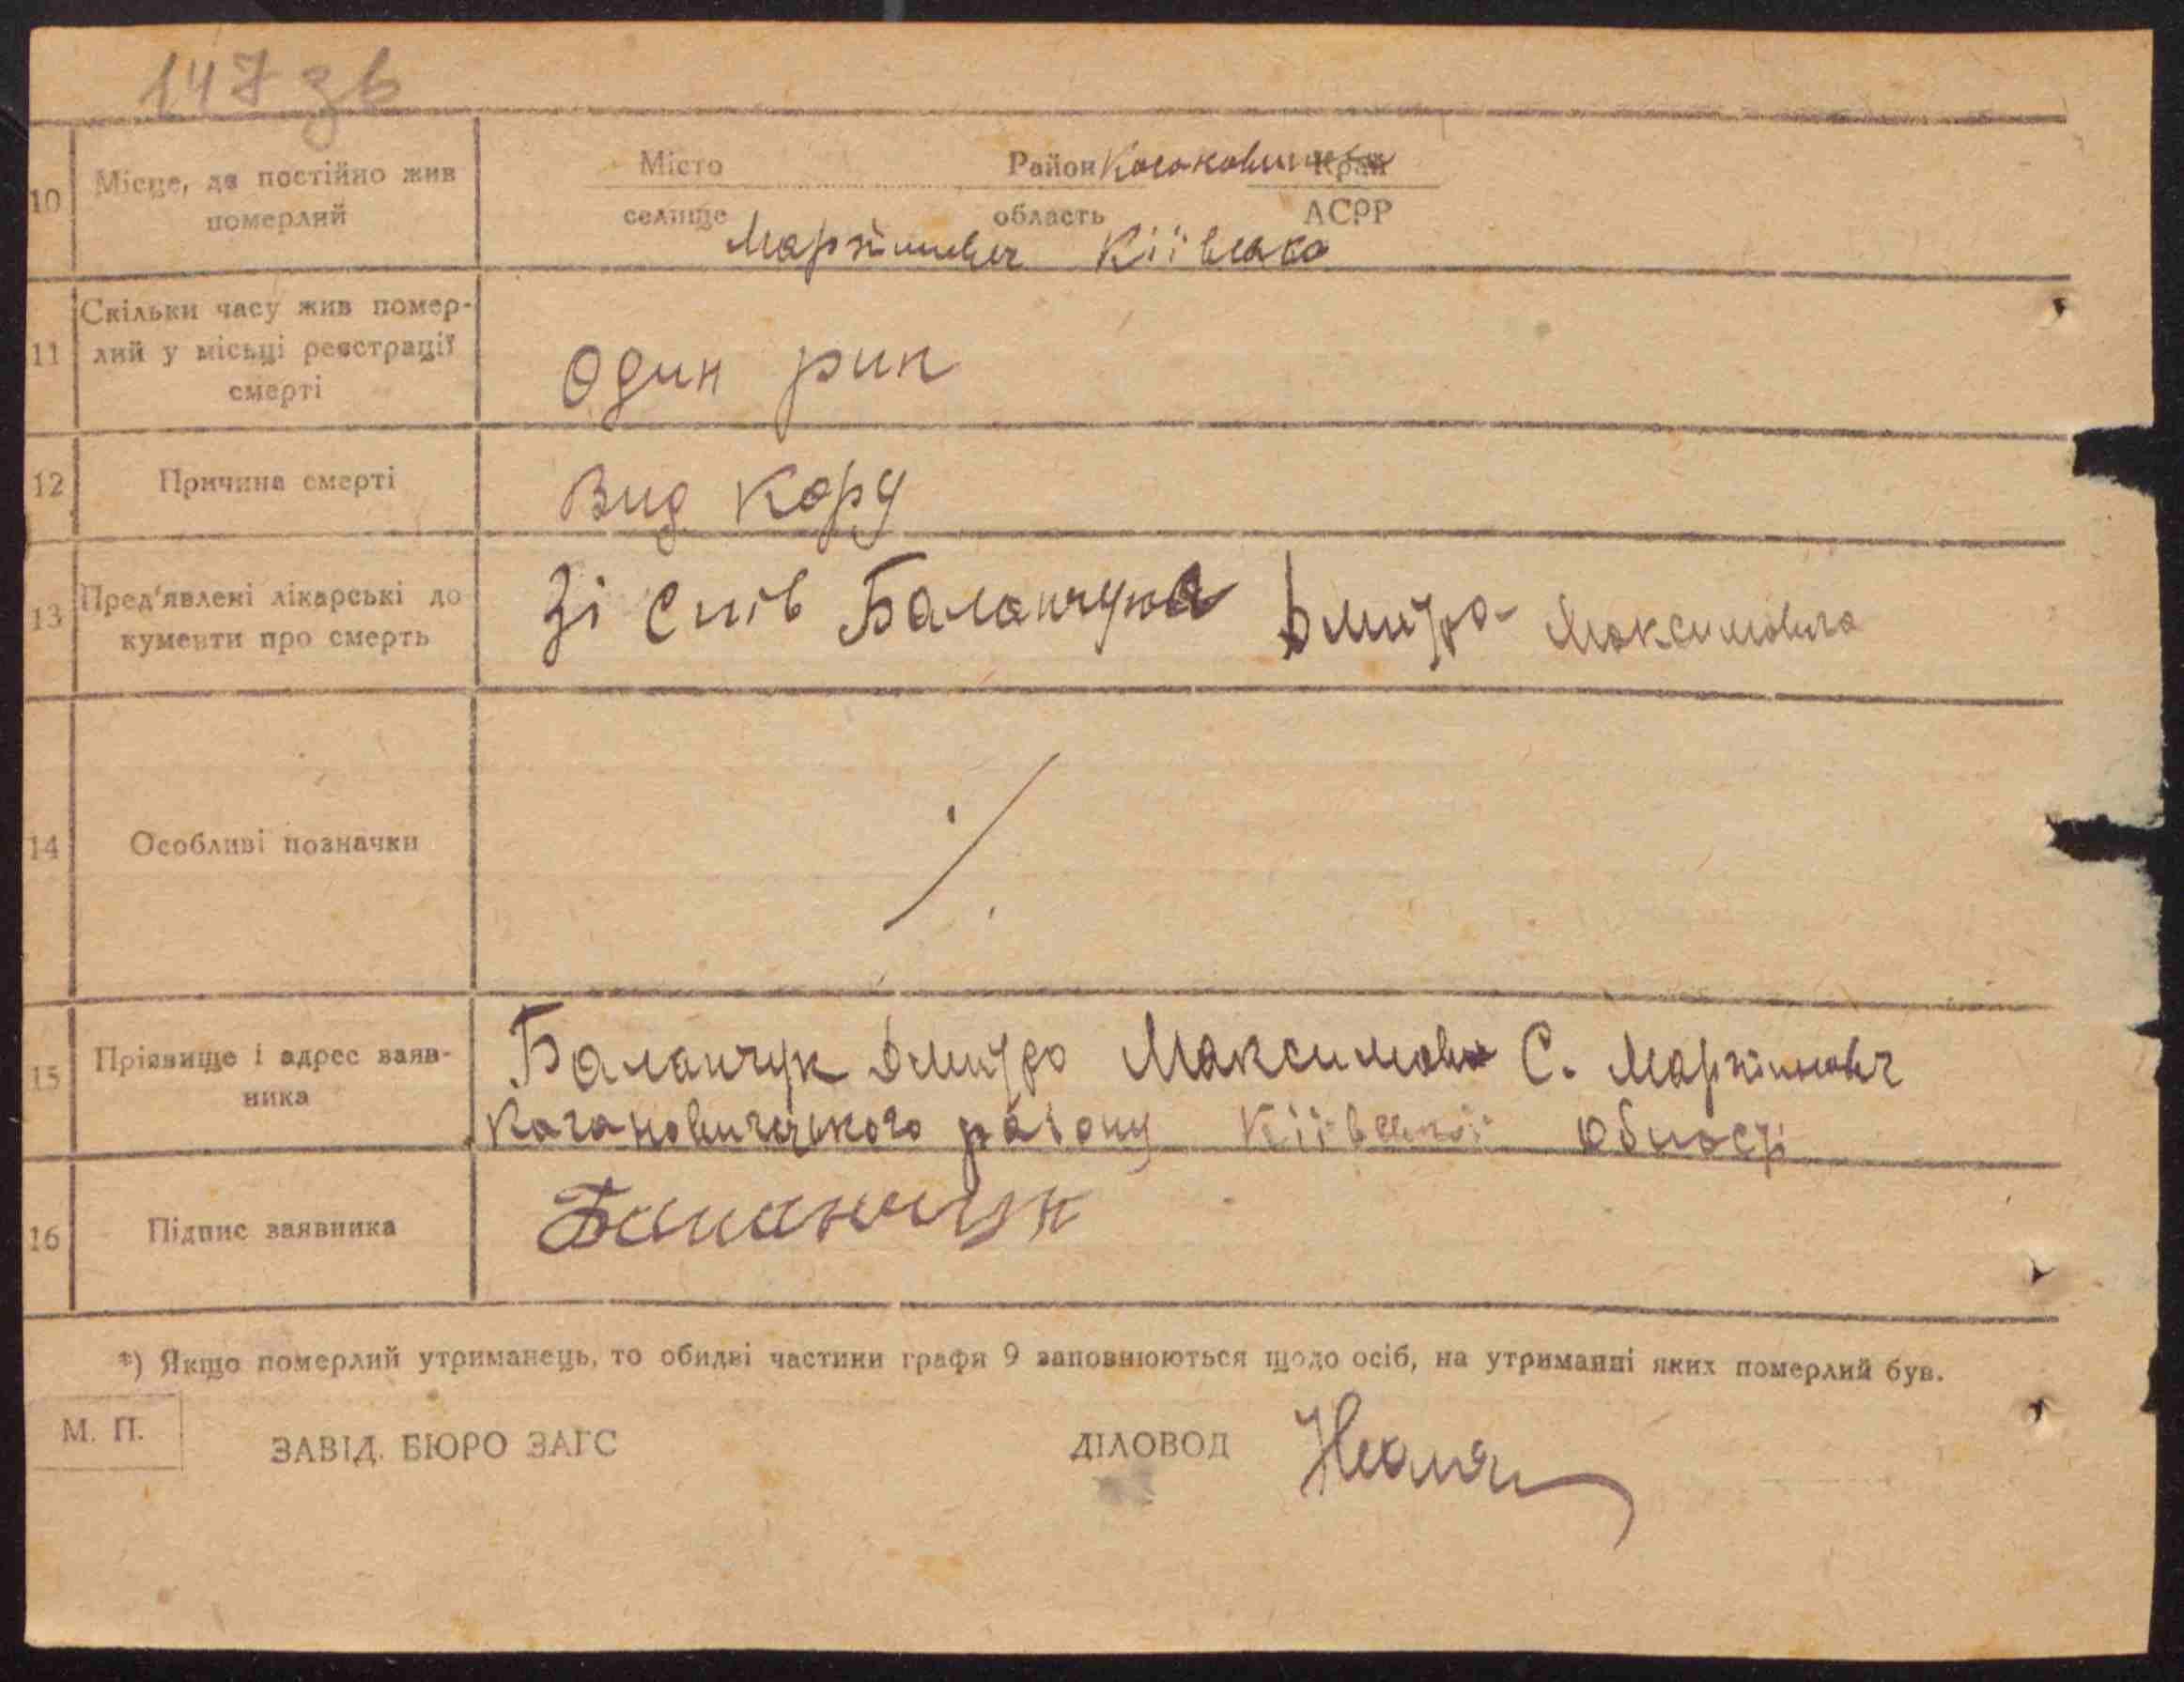 147 зв
10 Місце, де постійно жив померлий
Місто Район Край
селище область АСРР
Кіівська
11 Скільки часу жив помер-
лий у місьці реєстрації
смерті
Один рик
12 Причина смерті
Вид кору
13 Пред'явлені лікарські до
кументи про смерть
Зі слів Баланчука Дмитра Максимовича
14 Особливі позначки
15 Прізвище і адрес заяв-
ника
Баланчук Дмитро Максимови С. Мартинович
Кагановичіського раіону Кіівської області
16 Підпис заявника
Баланчук
*) Якщо померлий утриманець, то обидві частини графи 9 заповнюються щодо осіб, на утриманні яких померлий був.
М. П.
ЗАВІД. БЮРО ЗАГС ДІЛОВОД